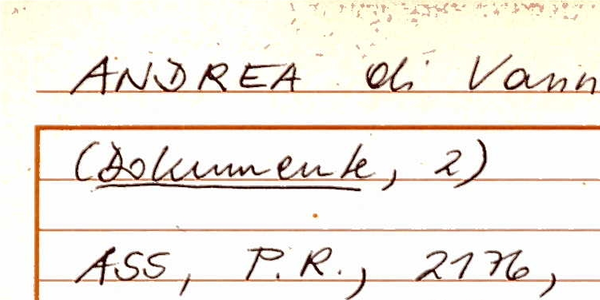 ANDREA di Vann
(Dokumente, 2)
ASS, P.R., 2176,